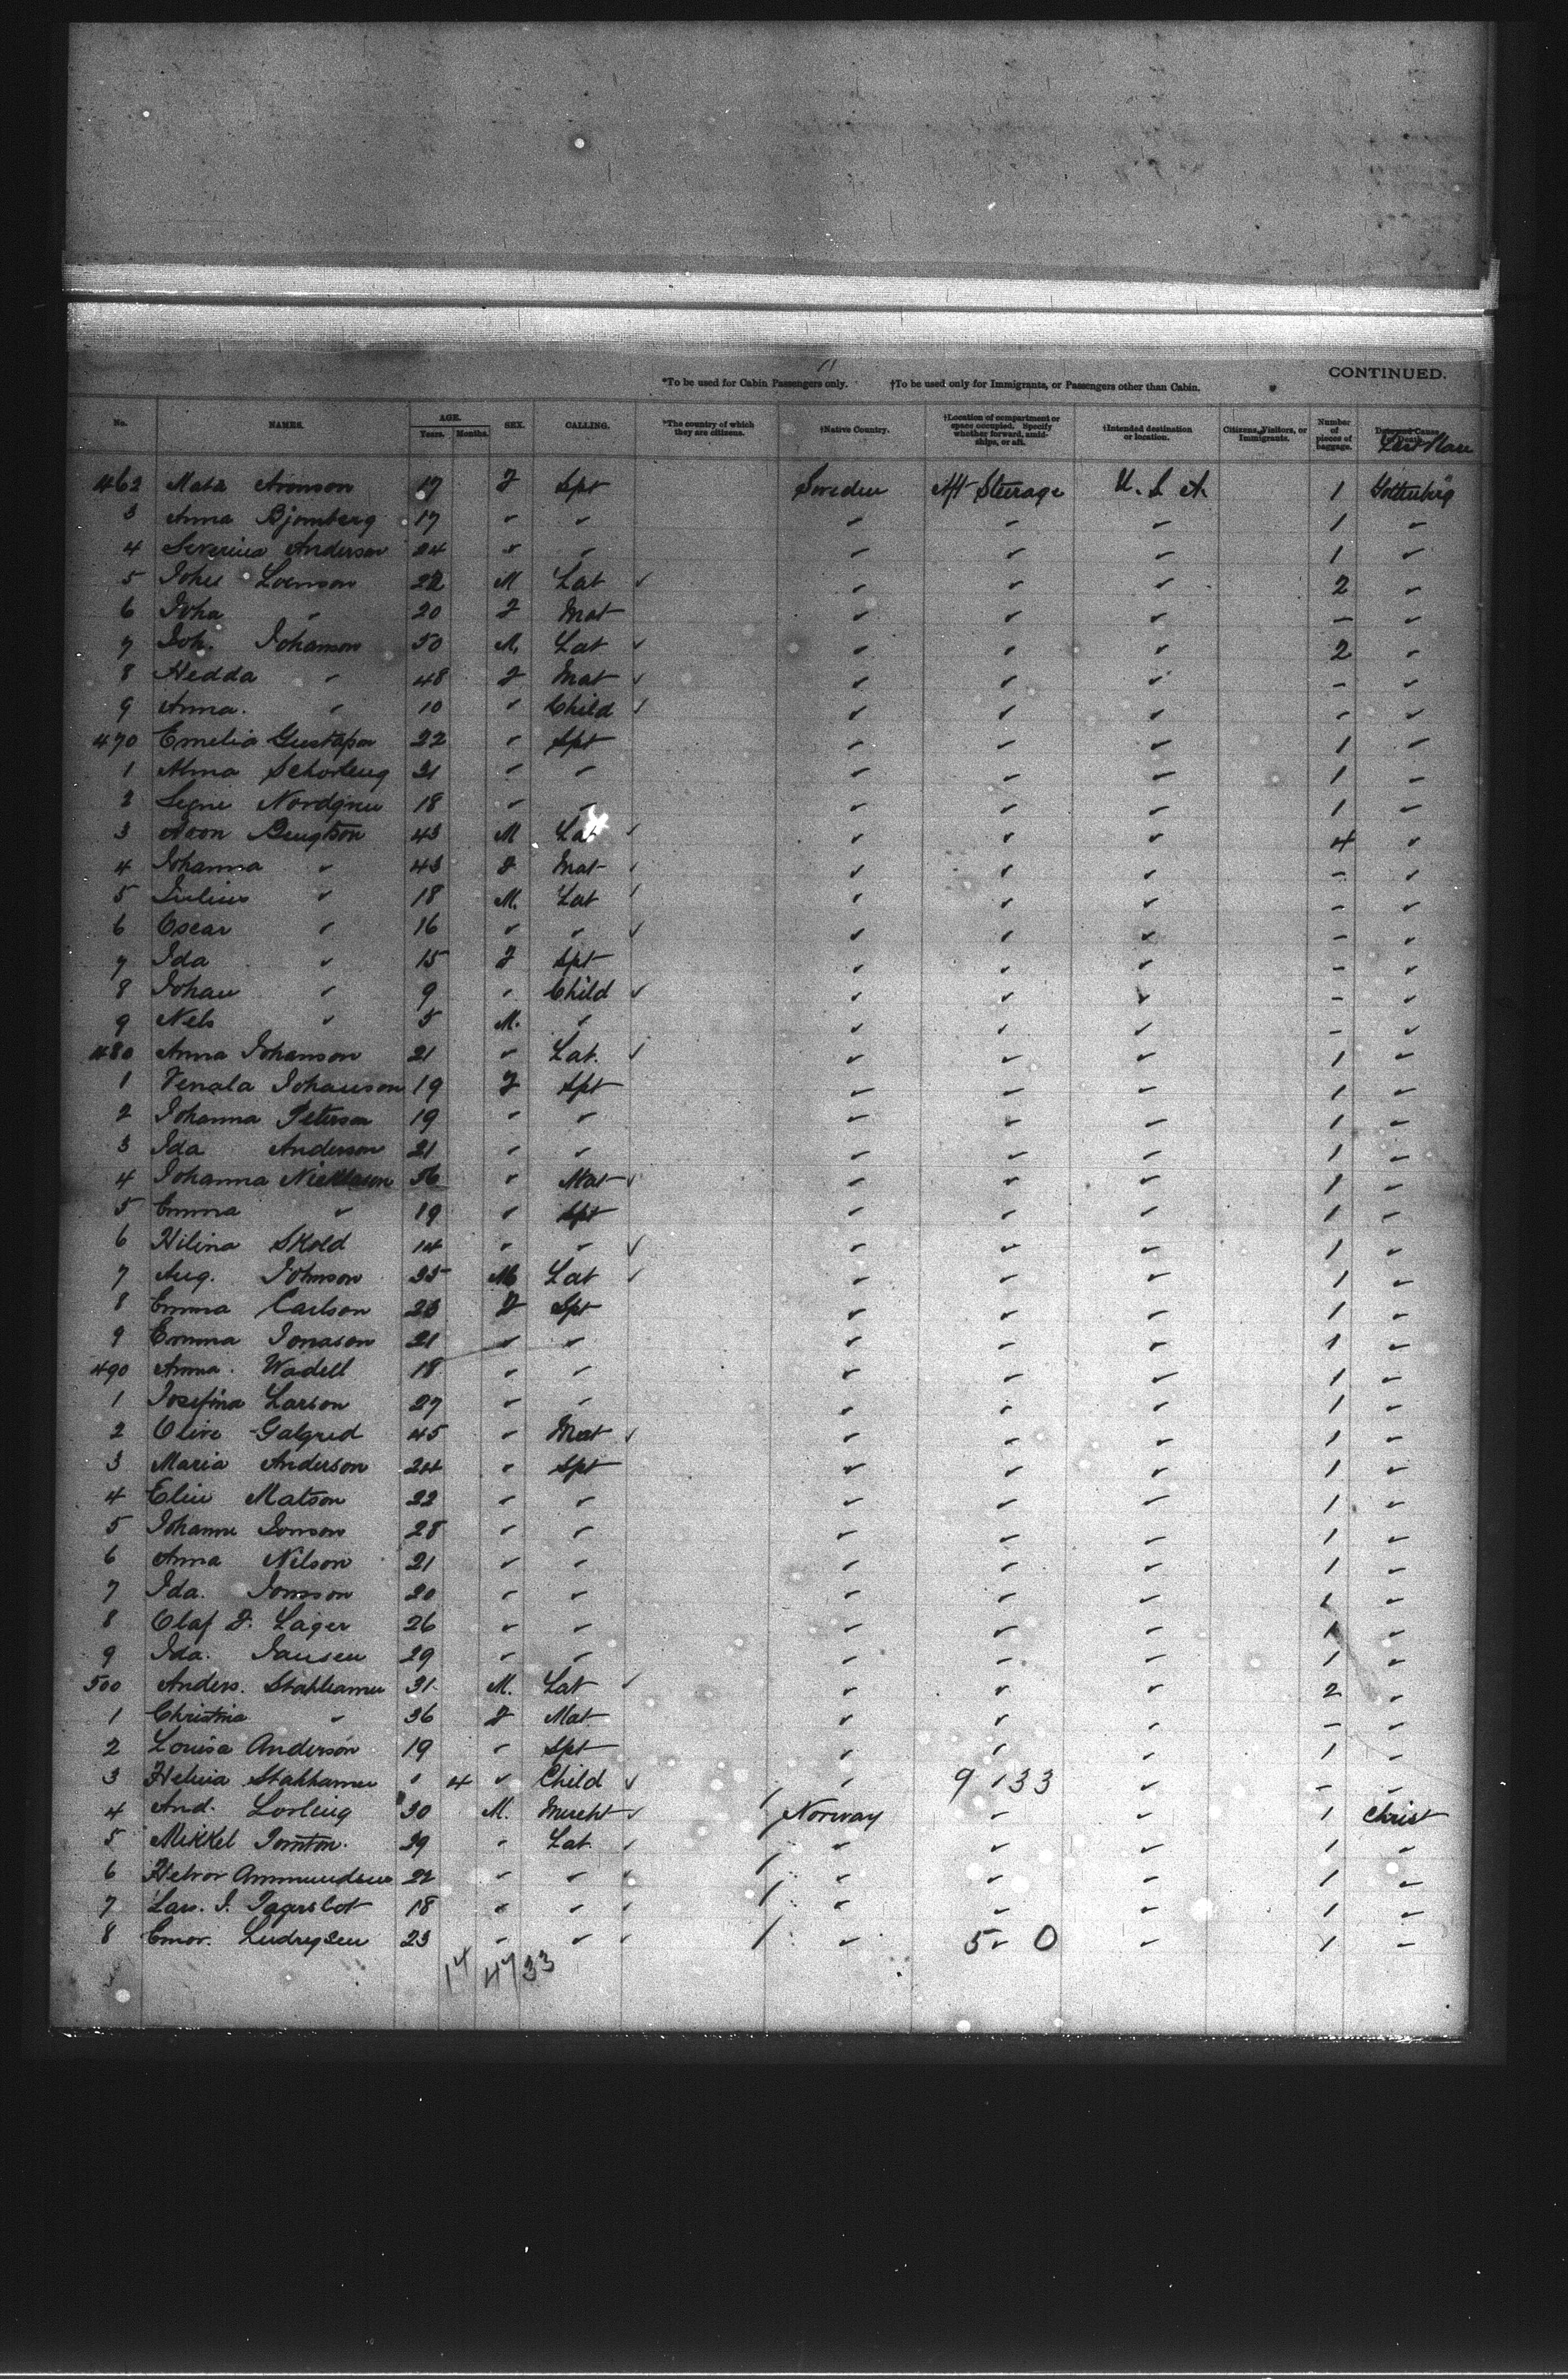 *To be used for Cabin Passengers only. †To be used only for Immigrants, or Passengers other than Cabin. CONTINUED.
No. NAMES. AGE. Years. Months. SEX. CALLING. *The country of which they are citizens. †Native Country. †Location of compartment or space occupied. Specify whether forward, amidships, or aft. †Intended destination or location. Citizens, Visitors, or Immigrants. Number of pieces of baggage. Date and Cause of Death. Last Place
462 Mata Aronson 17 F Spt Sweden Aft Steerage U. S. A. 1 Gottenberg
3 Anna Bjornberg 17 " " " " " 1 "
4 Severina Anderson 24 " " " " " 1 "
5 Johes 22 M Lat ✓ " " " 2 "
6 Joha " 20 F Mat " " " – "
7 Joh. Johanson 50 M. Lat ✓ " " " 2 "
8 Hedda " 48 F Mat ✓ " " " – "
9 Anna. " 10 " Child ✓ " " " – "
470 Emelia Gustafson 22 " Spt " " " 1 "
1 Alma 21 " " " " " 1 "
2 Signe Nordgren 18 " " " " " 1 "
3 Aron Bengtson 43 M Lat ✓ " " " 4 "
4 Johanna " 43 F Mat ✓ " " " – "
5 Julius " 18 M. Lat ✓ " " " – "
6 Oscar " 16 " " ✓ " " " – "
7 Ida " 15 F Spt " " " – "
8 Johan " 9 " Child ✓ " " " – "
9 Nels " 5 M. " " " " – "
480 Anna Johanson 21 " Lat. ✓ " " " 1 "
1 Venala Johanson 19 F Spt " " " 1 "
2 Johanna Peterson 19 " " " " " 1 "
3 Ida Anderson 21 " " " " " 1 "
4 Johanna Nicklason 56 " Mat ✓ " " " 1 "
5 Emma " 19 " Spt " " " 1 "
6 Hilina Skold 14 " " ✓ " " " 1 "
7 Aug. Johnson 35 M Lat ✓ " " " 1 "
8 Emma Carlson 23 F Spt " " " 1 "
9 Emma Jonason 21 " " " " " 1 "
490 Anna. Wadell 18 " " " " " 1 "
1 Josefina Larson 27 " " " " " 1 "
2 Olive Galgred 45 " Mat ✓ " " " 1 "
3 Maria Anderson 24 " Spt " " " 1 "
4 Elin Matson 22 " " " " " 1 "
5 Johanne Jonson 28 " " " " " 1 "
6 Anna Nilson 21 " " " " " 1 "
7 Ida. Jonsson 20 " " " " " 1 "
8 Olaf F. Lager 26 " " " " " 1 "
9 Ida. Jansen 29 " " " " " 1 "
500 Anders. Stahhamer 31 M. Lat ✓ " " " 2 "
1 Christina " 36 F Mat. " " " – "
2 Louisa Anderson 19 " Spt " " " 1 "
3 Helena Stahhamer " 4 " Child ✓ " 9 133 " – "
4 And. 30 M. Mercht ✓ Norway " " 1 Christ
5 Mikkel 29 " Lat. ✓ " " " 1 "
6 Ammundsen 22 " " ✓ " " " 1 "
7 Lars. J. 18 " " ✓ " " " 1 "
8 23 " " ✓ " 5 0 " 1 "
14 4733